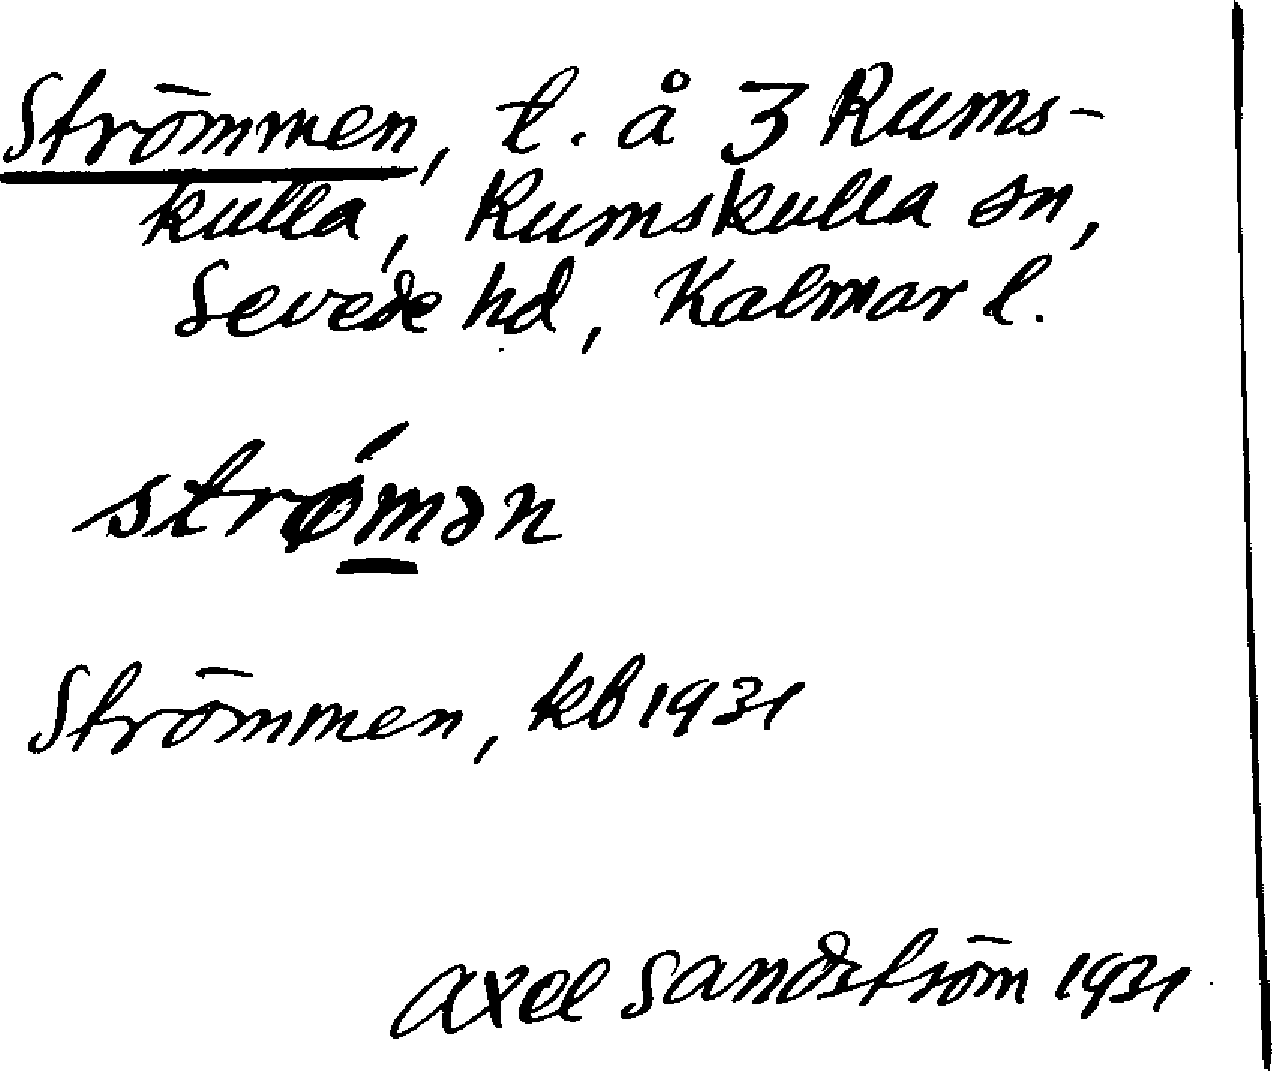 Strömmen, t. å 3 Rums-
kulla, Rumskulla sn,
Sevede hd, Kalmar l.
strǿmən
Strömmen, kb 1931
Axel Sandström 1931